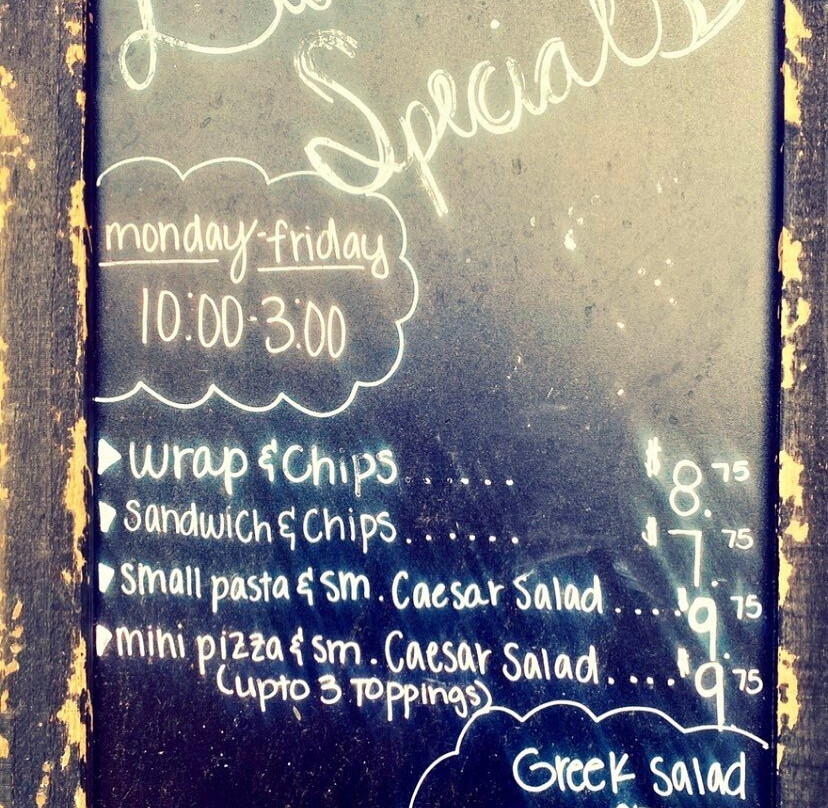 Specials
monday-friday
10:00-3:00
wrap & Chips . . . . . $8.75
sandwich & Chips . . . . . . $7.75
small pasta & sm. Caesar Salad . . . . $9.75
mini pizza & sm. Caesar Salad . . . . $9.75
(upto 3 Toppings)
Greek salad